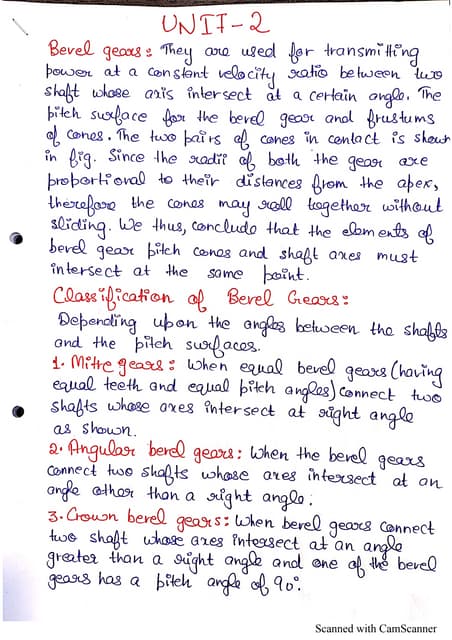 UNIT-2
Bevel gears: They are used for transmitting
power at a constent velocity ratio between two
shaft whose axis intersect at a certain angle. The
pitch surface for the bevel gear and frustums
of cones. The two pairs of cones in contact is shown
in fig. Since the radii of both the gear are
proportional to their distances from the apex,
therefore the cones may roll together without
sliding. We thus, conclude that the elements of
bevel gear pitch cones and shaft axes must
intersect at the same point.
Classification of Bevel Gears:
Depending upon the angles between the shafts
and the pitch surfaces.
1. Mitre gears: When equal bevel gears (having
equal teeth and equal pitch angles) connect two
shafts whose axes intersect at right angle
as shown.
2. Angular bevel gears: When the bevel gears
connect two shafts whose axes intersect at an
angle other than a right angle.
3. Crown bevel gears: When bevel gears connect
two shaft whose axes intersect at an angle
greater than a right angle and one of the bevel
gears has a pitch angle of 90°.
Scanned with CamScanner